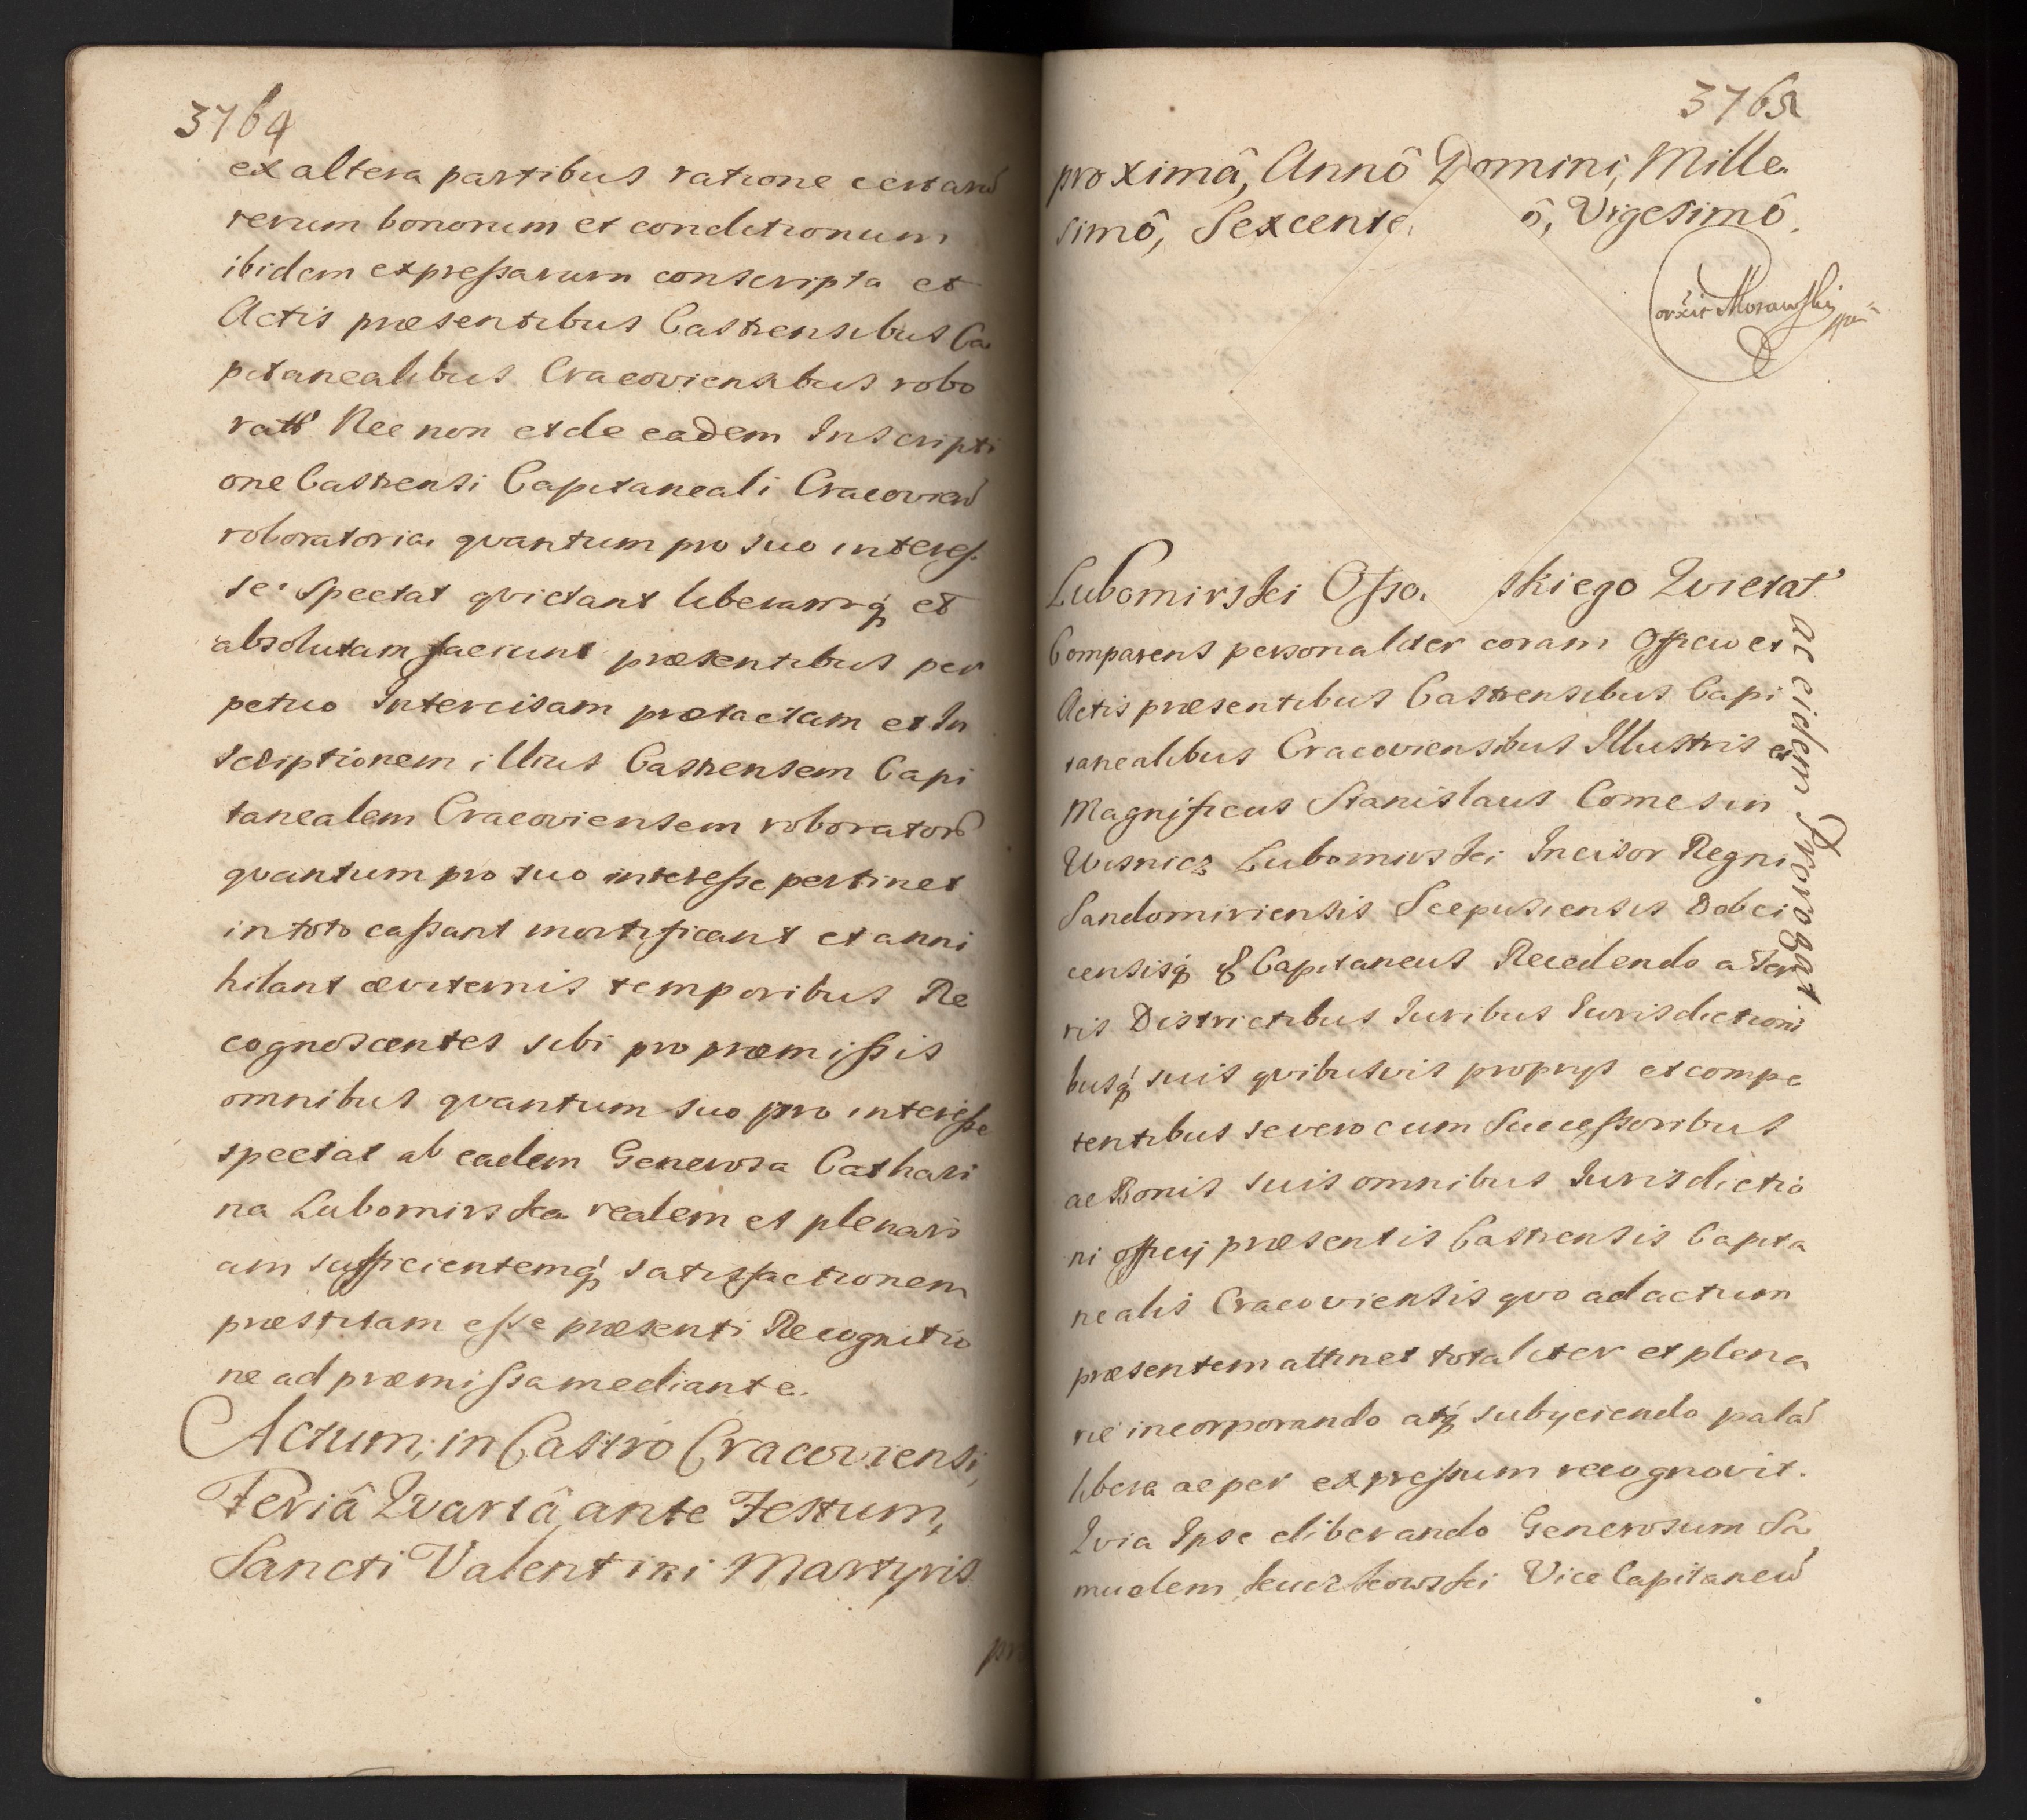 3764
ex altera partibus ratione certarū
rerum bonorum et conditionum
ibidem expressarum conscripta et
Actis præsentibus Castrensibus Ca
pitanealibus Cracoviensibus robo
rat Nec non et de eadem Inscripti
one Castrensi Capitaneali Cracovień
roboratoria quantum pro suo interes
se spectat qvietant liberamq́ et
absolutam faciunt præsentibus per
petuo Intercisam prætactam et In
scriptionem illius Castrensem Capi
tanealem Cracoviensem roborator
qvantum pro suo interesse pertinet
in toto cassant mortificant et anni
hilant ævitemis temporibus Re
cognoscentes sibi pro præmissis
omnibus qvantum suo pro interesse
spectat ab eadem Generosa Cathari
na Lubomirska realem et plenari
am sufficientemq́ satisfactionem
præstitam esse præsenti Recognitio
ne ad præmissa mediante.
Actum, in Castro Cracoviensi,
Feriâ Qvartâ ante Festum,
Sancti Valentini Martyris
pro
3765
proximâ, Annô Domini, Mille
simô, Sexcente ô, Vigesimô.
Morawskij
Lubomirski Osso skiego Qvietat
ac eidem Prorogat
Comparens personaliter coram Officio et
Actis præsentibus Castrensibus Capi
tanealibus Cracoviensibus Illustris et
Magnificus Stanislaus Comes in
Wisnicz Lubomirski Incisor Regni
Sandomiriensis Scepusiensis Dobci
censisq́ & Capitaneus Recedendo a Ter
ris Districtibus Iuribus Iurisdictioni
busq́ suis qvibusvis proprys et compe
tentibus se vero cum Successoribus
ac Bonis suis omnibus Iurisdictio
ni officij præsentis Castrensis Capita
nealis Cracoviensis qvo ad actum
præsentem attinet totaliter et plena
rie incorporando atq́ subyciendo palā
libera ac per expressum recognovit.
Qvia Ipse eliberando Generosum Sa
muelem Vice Capitaneū